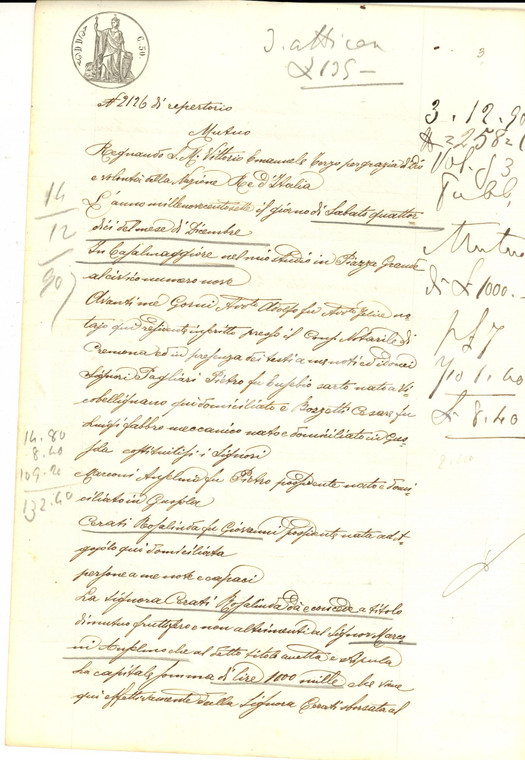 J. attico
£ 135 –
3
N 2126 di repertorio
Mutuo
Regnando S. M. Vittorio Emanuele Terzo per grazia di Dio
e volontà della Nazione Re d'Italia
L'anno millenovecentosette il giorno di Sabato quattor
dici del mese di Dicembre
In Casalmaggiore nel mio studio in Piazza Grande
al civico numero nove
Avanti me Gorni Avvto Adolfo fu Avvto Elia no
tajo qui residente inscritto presso il Cons. Notarile di
Cremona ed in presenza dei testi a me noti ed idonei
Signori Pagliari Pietro fu Eusebio sarto nato a Vi
cobellignano qui domiciliato e Bozzetti Cesare fu
Luigi fabbro meccanico nato e domiciliato in Gus
sola costituitisi i Signori
Marconi Anselmo fu Pietro possidente nato e domi
ciliato in Gussola
Cerati Rosalinda fu Giovanni possidente nata ad
qui domiciliata
persone a me note e capaci
La Signora Cerati Rosalinda dà e concede a titolo
di mutuo fruttifero e non altrimenti al Signor Marco
ni Anselmo che al detto titolo accetta e stipula
la capitale somma di lire 1000 mille che viene
qui effettivamente dalla Signora Cerati sborsata al
14
12
907
14.80
8.40
109.20
132.40
3.12.90
Vol. 93
Pubbl.
Mutuo
di £ 1000.–
pf 7
yo 1.40
£ 8.40